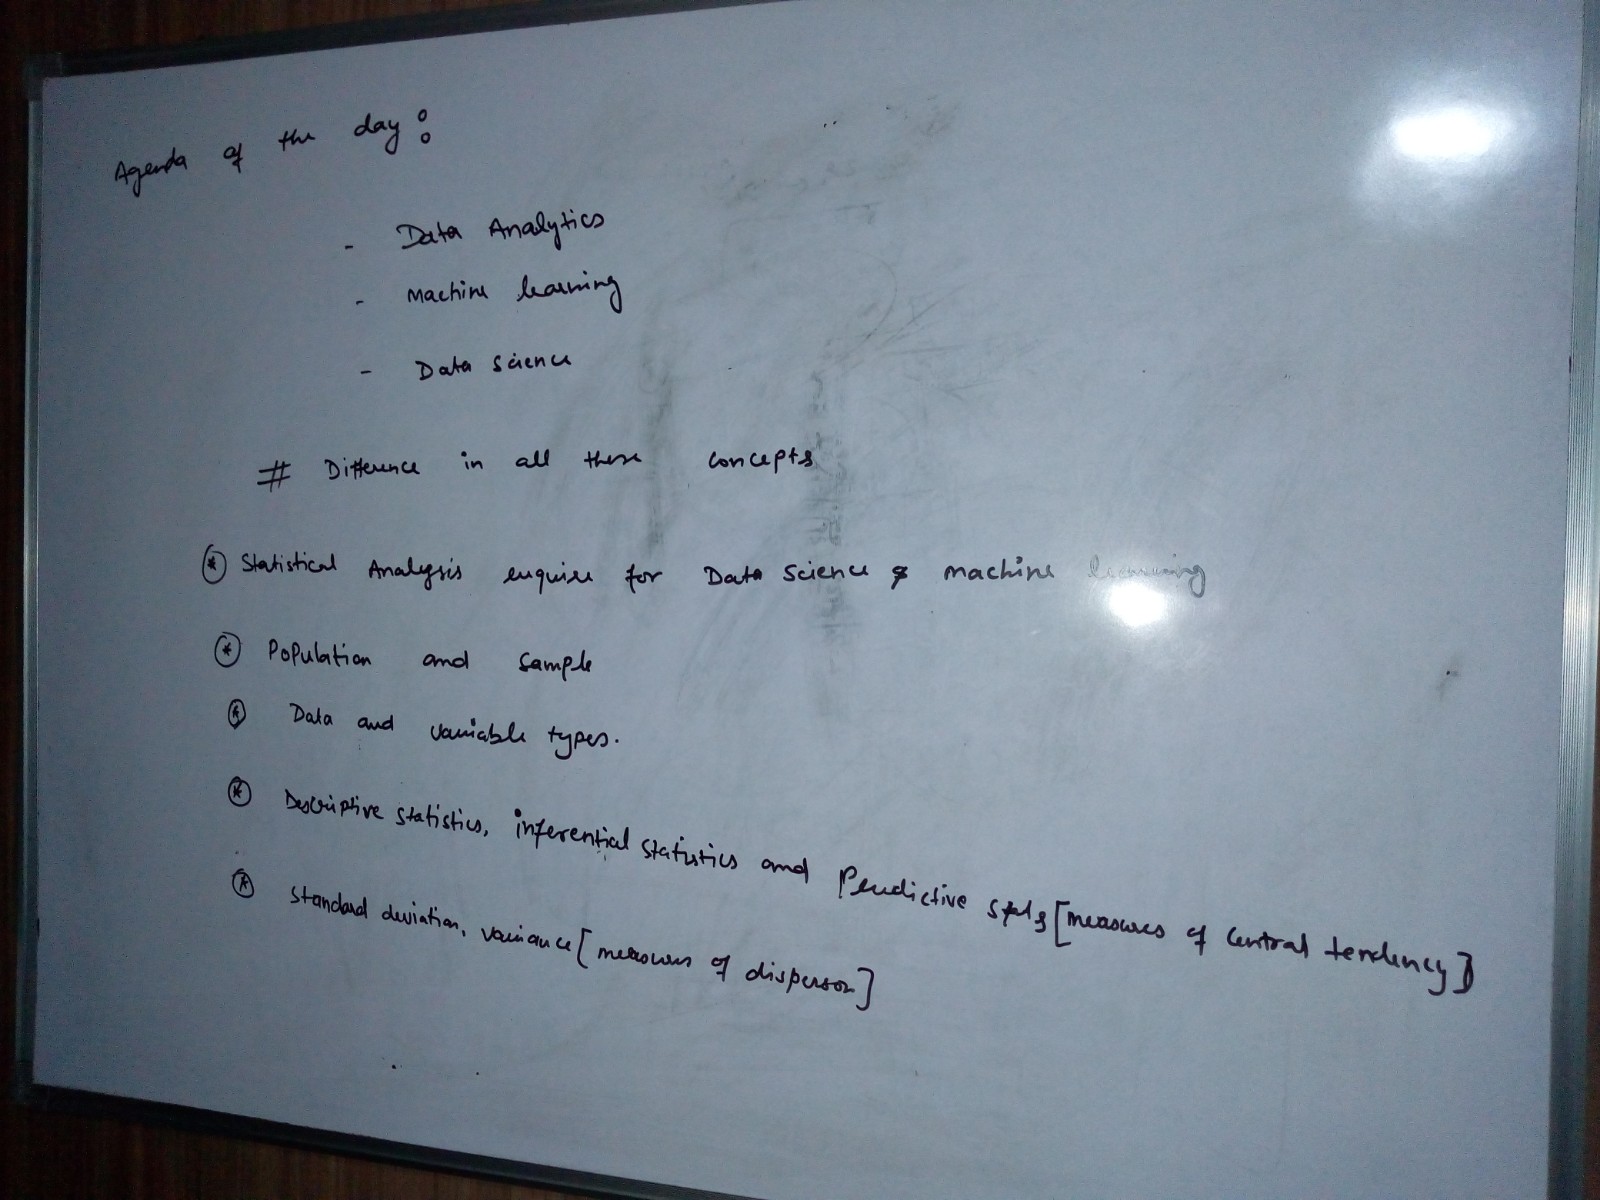 Agenda of the day :
- Data Analytics
- Machine learning
- Data Science
# Difference in all these concepts
* Statistical Analysis require for Data Science & machine learning
* Population and Sample
* Data and variable types.
* Descriptive statistics, inferential statistics and Predictive [measures of Central tendency]
* Standard deviation, variance [measures of disperson]